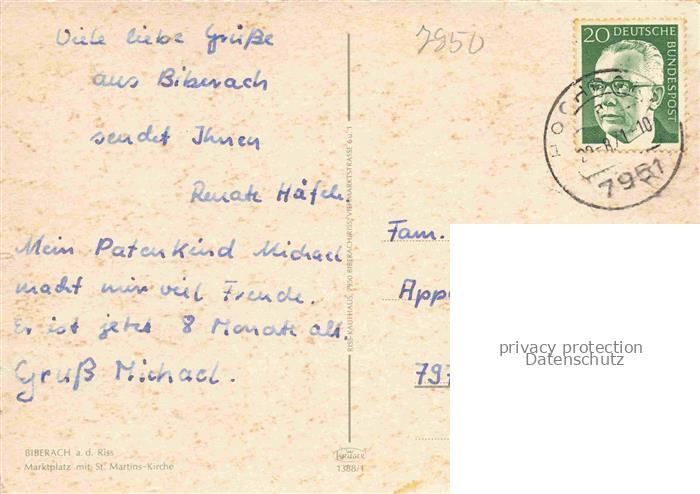 Viele liebe Grüße
aus Biberach
sendet Ihnen
Renate
Mein Patenkind Michael
macht mir viel Freude.
Er ist jetzt 8 Monate alt.
Gruß Michael.
BIBERACH a. d. Riss
Marktplatz mit St. Martins-Kirche
RISS-KAUFHAUS, 7950 BIBERACH/RISS, VIEHMARKTSTRASSE 6 u. 1
1388/1
7950
20 DEUTSCHE
BUNDESPOST
7951
Fam.
Appe
797
privacy protection
Datenschutz